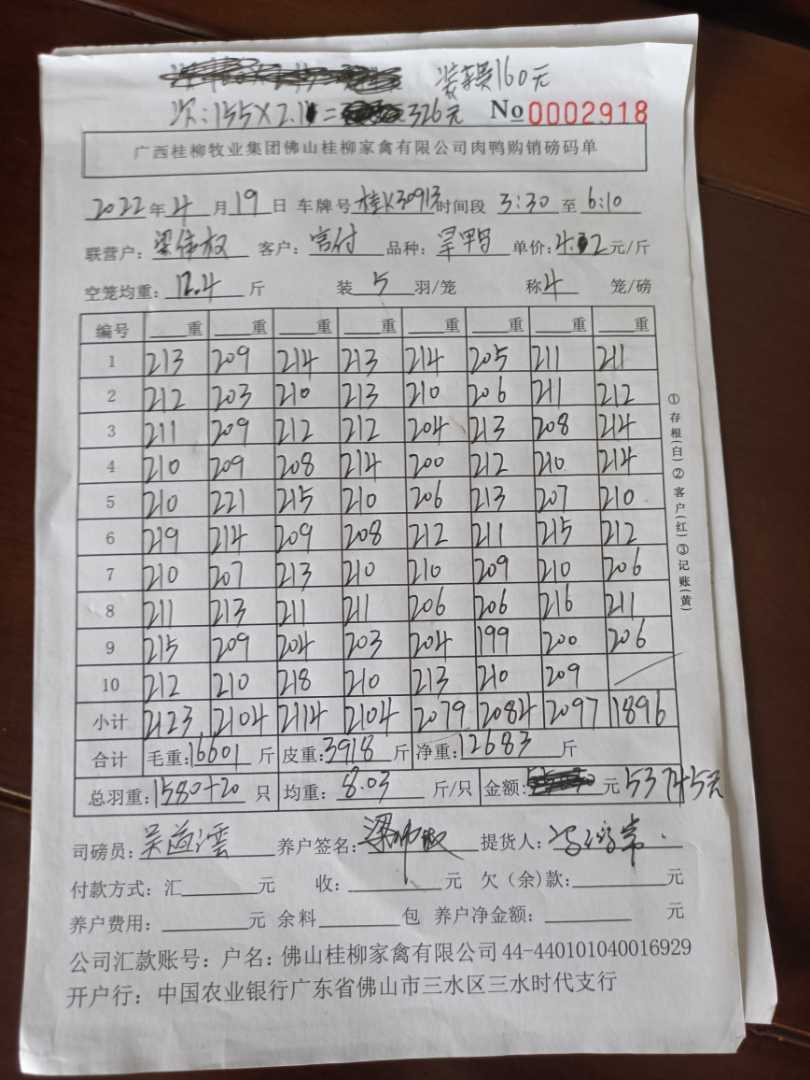 装车费160元
次:155×2.1=326元 No 0002918
广西桂柳牧业集团佛山桂柳家禽有限公司肉鸭购销磅码单
2022年4月19日 车牌号桂K30913时间段 3:30至6:10
联营户:梁伟权 客户:富付 品种:旱鸭 单价:4.32元/斤
空笼均重:12.4斤 装5羽/笼 称4笼/磅
编号 重 重 重 重 重 重 重 重
1 213 209 214 213 214 205 211 211
2 212 203 210 213 210 206 211 212
3 211 209 212 212 204 213 208 214
4 210 209 208 214 200 212 210 214
5 210 221 215 210 206 213 207 210
6 219 214 209 208 212 211 215 212
7 210 207 213 210 210 209 210 206
8 211 213 211 211 206 206 216 211
9 215 209 204 203 204 199 200 206
10 212 210 218 210 213 210 209
小计 2123 2104 2114 2104 2079 2084 2097 1896
合计 毛重:16601斤 皮重:3918斤 净重:12683斤
总羽重:1580+20只 均重:8.03斤/只 金额:元53745元
司磅员: 养户签名: 提货人:
付款方式:汇 元 收: 元 欠(余)款: 元
养户费用: 元 余料 包 养户净金额: 元
公司汇款账号:户名:佛山桂柳家禽有限公司44-440101040016929
开户行:中国农业银行广东省佛山市三水区三水时代支行
①存根(白)②客户(红)③记账(黄)